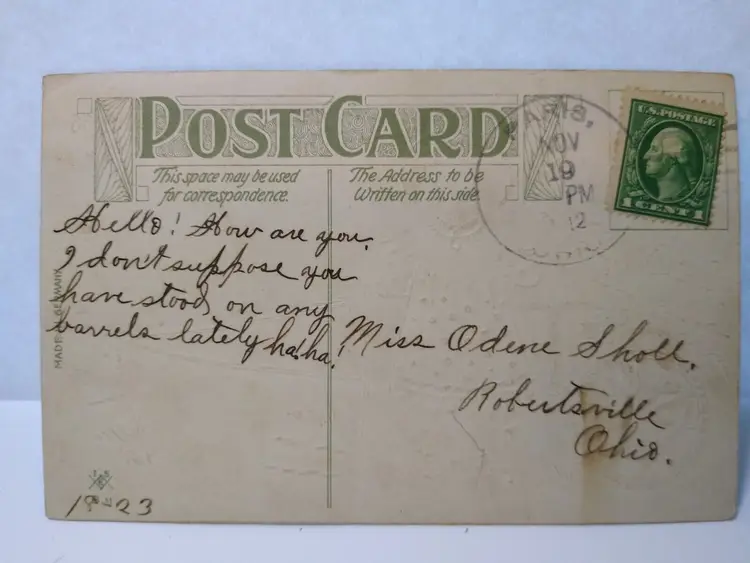 POST CARD
This space may be used
for correspondence.
The Address to be
Written on this side.
NOV
19
PM
12
U.S. POSTAGE
1 CENT 1
Hello! How are you.
I don't suppose you
have stood on any
barrels lately ha! ha!
Miss Odene Sholl.
Robertsville
Ohio.
MADE GERMANY
18 23